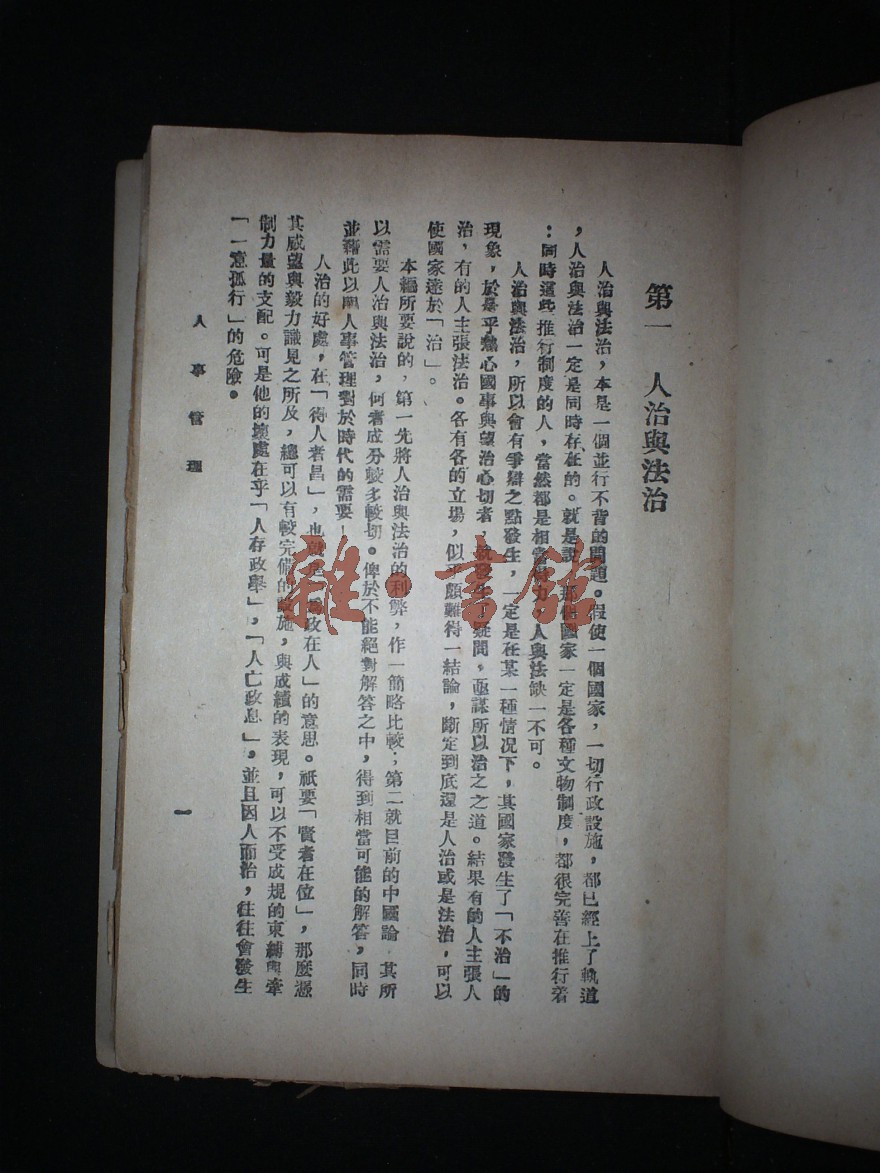 第一　人治與法治
人治與法治，本是一個並行不背的問題。假使一個國家，一切行政設施，都已經上了軌道
，人治與法治一定是同時存在的。就是說，那個國家一定是各種文物制度，都很完善在推行着
；同時這些推行制度的人，當然都是相當力人與法缺一不可。
人治與法治，所以會有爭辯之點發生，一定是在某一種情況下，其國家發生了「不治」的
現象，於是乎熱心國事與望治心切者，就發生了疑問，亟謀所以治之之道。結果有的人主張人
治，有的人主張法治。各有各的立場，似乎頗難得一結論，斷定到底還是人治或是法治，可以
使國家達於「治」。
本編所要說的，第一先將人治與法治的利弊，作一簡略比較；第二就目前的中國論，其所
以需要人治與法治，何者成分較多較切。俾於不能絕對解答之中，得到相當可能的解答，同時
並藉此以闡人事管理對於時代的需要！
人治的好處，在「待人者昌」，也就是「為政在人」的意思。祇要「賢者在位」，那麼憑
其威望與毅力識見之所及，總可以有較完備的設施，與成績的表現，可以不受成規的束縛與牽
制力量的支配。可是他的壞處在乎「人存政舉」，「人亡政息」，並且因人而治，往往會發生
「一意孤行」的危險。
人事管理
一
雜·書館